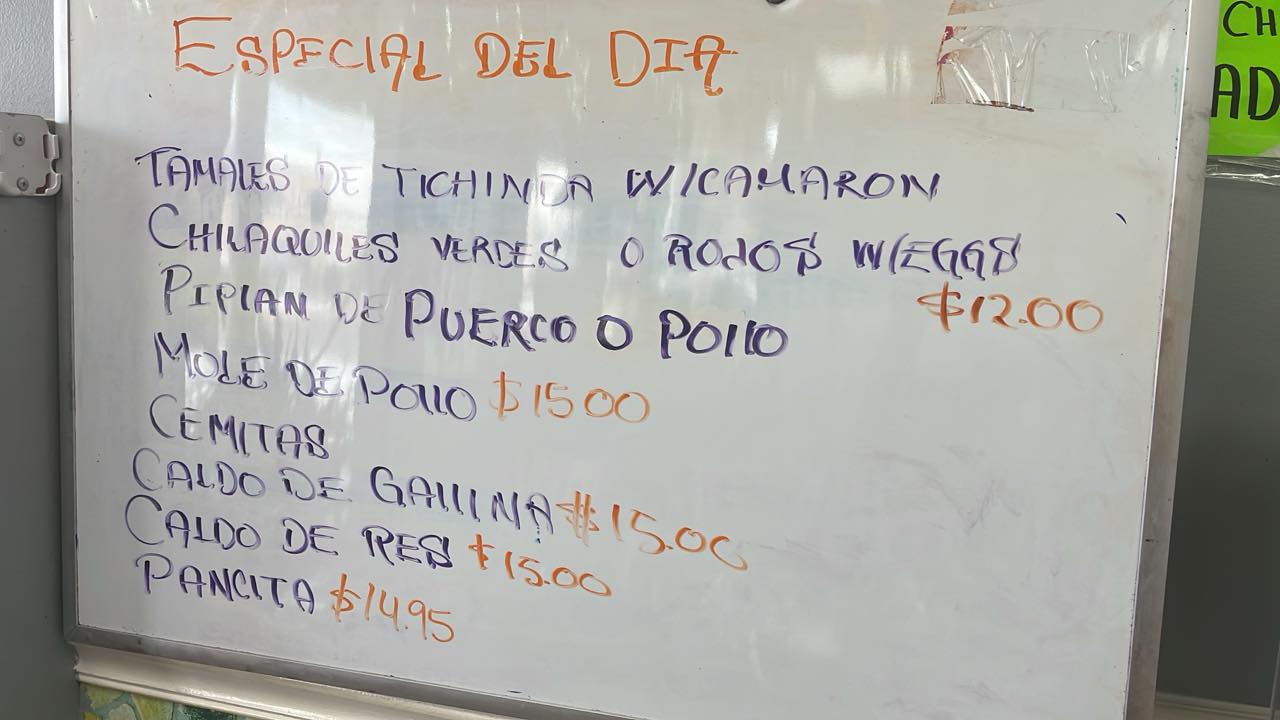 ESPECIAL DEL DIA
TAMALES DE TICHINDA W/CAMARON
CHILAQUILES VERDES O ROJOS W/EGGS
$12.00
PIPIAN DE PUERCO O POLLO
MOLE DE POLLO $15.00
CEMITAS
CALDO DE GALLINA $15.00
CALDO DE RES $15.00
PANCITA $14.95
CH
AD